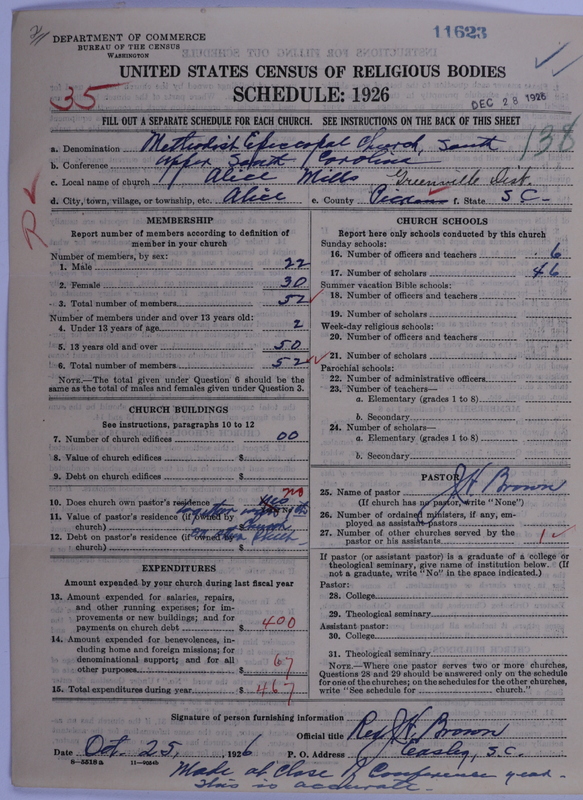 11623
DEPARTMENT OF COMMERCE
BUREAU OF THE CENSUS
WASHINGTON
UNITED STATES CENSUS OF RELIGIOUS BODIES
SCHEDULE: 1926
35
DEC 28 1926
FILL OUT A SEPARATE SCHEDULE FOR EACH CHURCH. SEE INSTRUCTIONS ON THE BACK OF THIS SHEET
138
a. Denomination Methodist Episcopal Church, South
b. Conference Upper South Carolina
c. Local name of church Alice Mills Greenville Dist.
d. City, town, village, or township, etc. Alice e. County Pickens f. State S.C.
MEMBERSHIP
Report number of members according to definition of member in your church
Number of members, by sex:
1. Male 22
2. Female 30
3. Total number of members 52
Number of members under and over 13 years old:
4. Under 13 years of age 2
5. 13 years old and over 50
6. Total number of members 52
NOTE.—The total given under Question 6 should be the same as the total of males and females given under Question 3.
CHURCH BUILDINGS
See instructions, paragraphs 10 to 12
7. Number of church edifices 00
8. Value of church edifices $
9. Debt on church edifices $
10. Does church own pastor's residence Yes no
11. Value of pastor's residence (if owned by church)
12. Debt on pastor's residence (if owned by church) $
EXPENDITURES
Amount expended by your church during last fiscal year
13. Amount expended for salaries, repairs, and other running expenses; for improvements or new buildings; and for payments on church debt $ 400
14. Amount expended for benevolences, including home and foreign missions; for denominational support; and for all other purposes $ 67
15. Total expenditures during year $ 467
CHURCH SCHOOLS
Report here only schools conducted by this church
Sunday schools:
16. Number of officers and teachers 6
17. Number of scholars 46
Summer vacation Bible schools:
18. Number of officers and teachers
19. Number of scholars
Week-day religious schools:
20. Number of officers and teachers
21. Number of scholars
Parochial schools:
22. Number of administrative officers
23. Number of teachers—
a. Elementary (grades 1 to 8)
b. Secondary
24. Number of scholars—
a. Elementary (grades 1 to 8)
b. Secondary
PASTOR
25. Name of pastor J H Brown
(If church has no pastor, write "None")
26. Number of ordained ministers, if any, employed as assistant pastors
27. Number of other churches served by the pastor or his assistants 1
If pastor (or assistant pastor) is a graduate of a college or theological seminary, give name of institution below. (If not a graduate, write "No" in the space indicated.)
Pastor:
28. College
29. Theological seminary
Assistant pastor:
30. College
31. Theological seminary
NOTE.—Where one pastor serves two or more churches, Questions 28 and 29 should be answered only on the schedule for one of the churches; on the schedules for the other churches, write "See schedule for church."
Signature of person furnishing information
Official title Rev J H Brown
Date Oct. 25, 1926 P. O. Address Easley, S.C.
8-5518a 11-9054b
Made at Close of Conference year.
This is accurate.